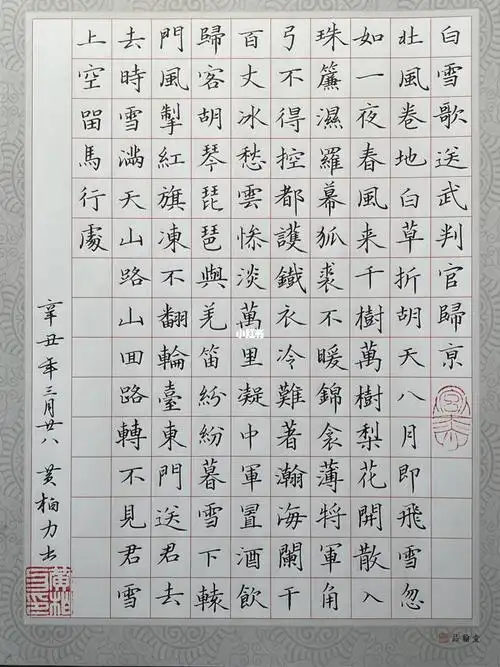 白雪歌送武判官歸京
北風卷地白草折胡天八月即飛雪忽
如一夜春風来千樹萬樹梨花開散入
珠簾濕羅幕狐裘不暖錦衾薄將軍角
弓不得控都護鐵衣冷難著瀚海闌干
百丈冰愁雲惨淡萬里凝中軍置酒飲
歸客胡琴琵琶與羌笛紛紛暮雪下轅
門風掣紅旗凍不翻輪臺東門送君去
去時雪滿天山路山回路轉不見君雪
上空留馬行處
辛丑年三月廿八 黄柏力书
小红书